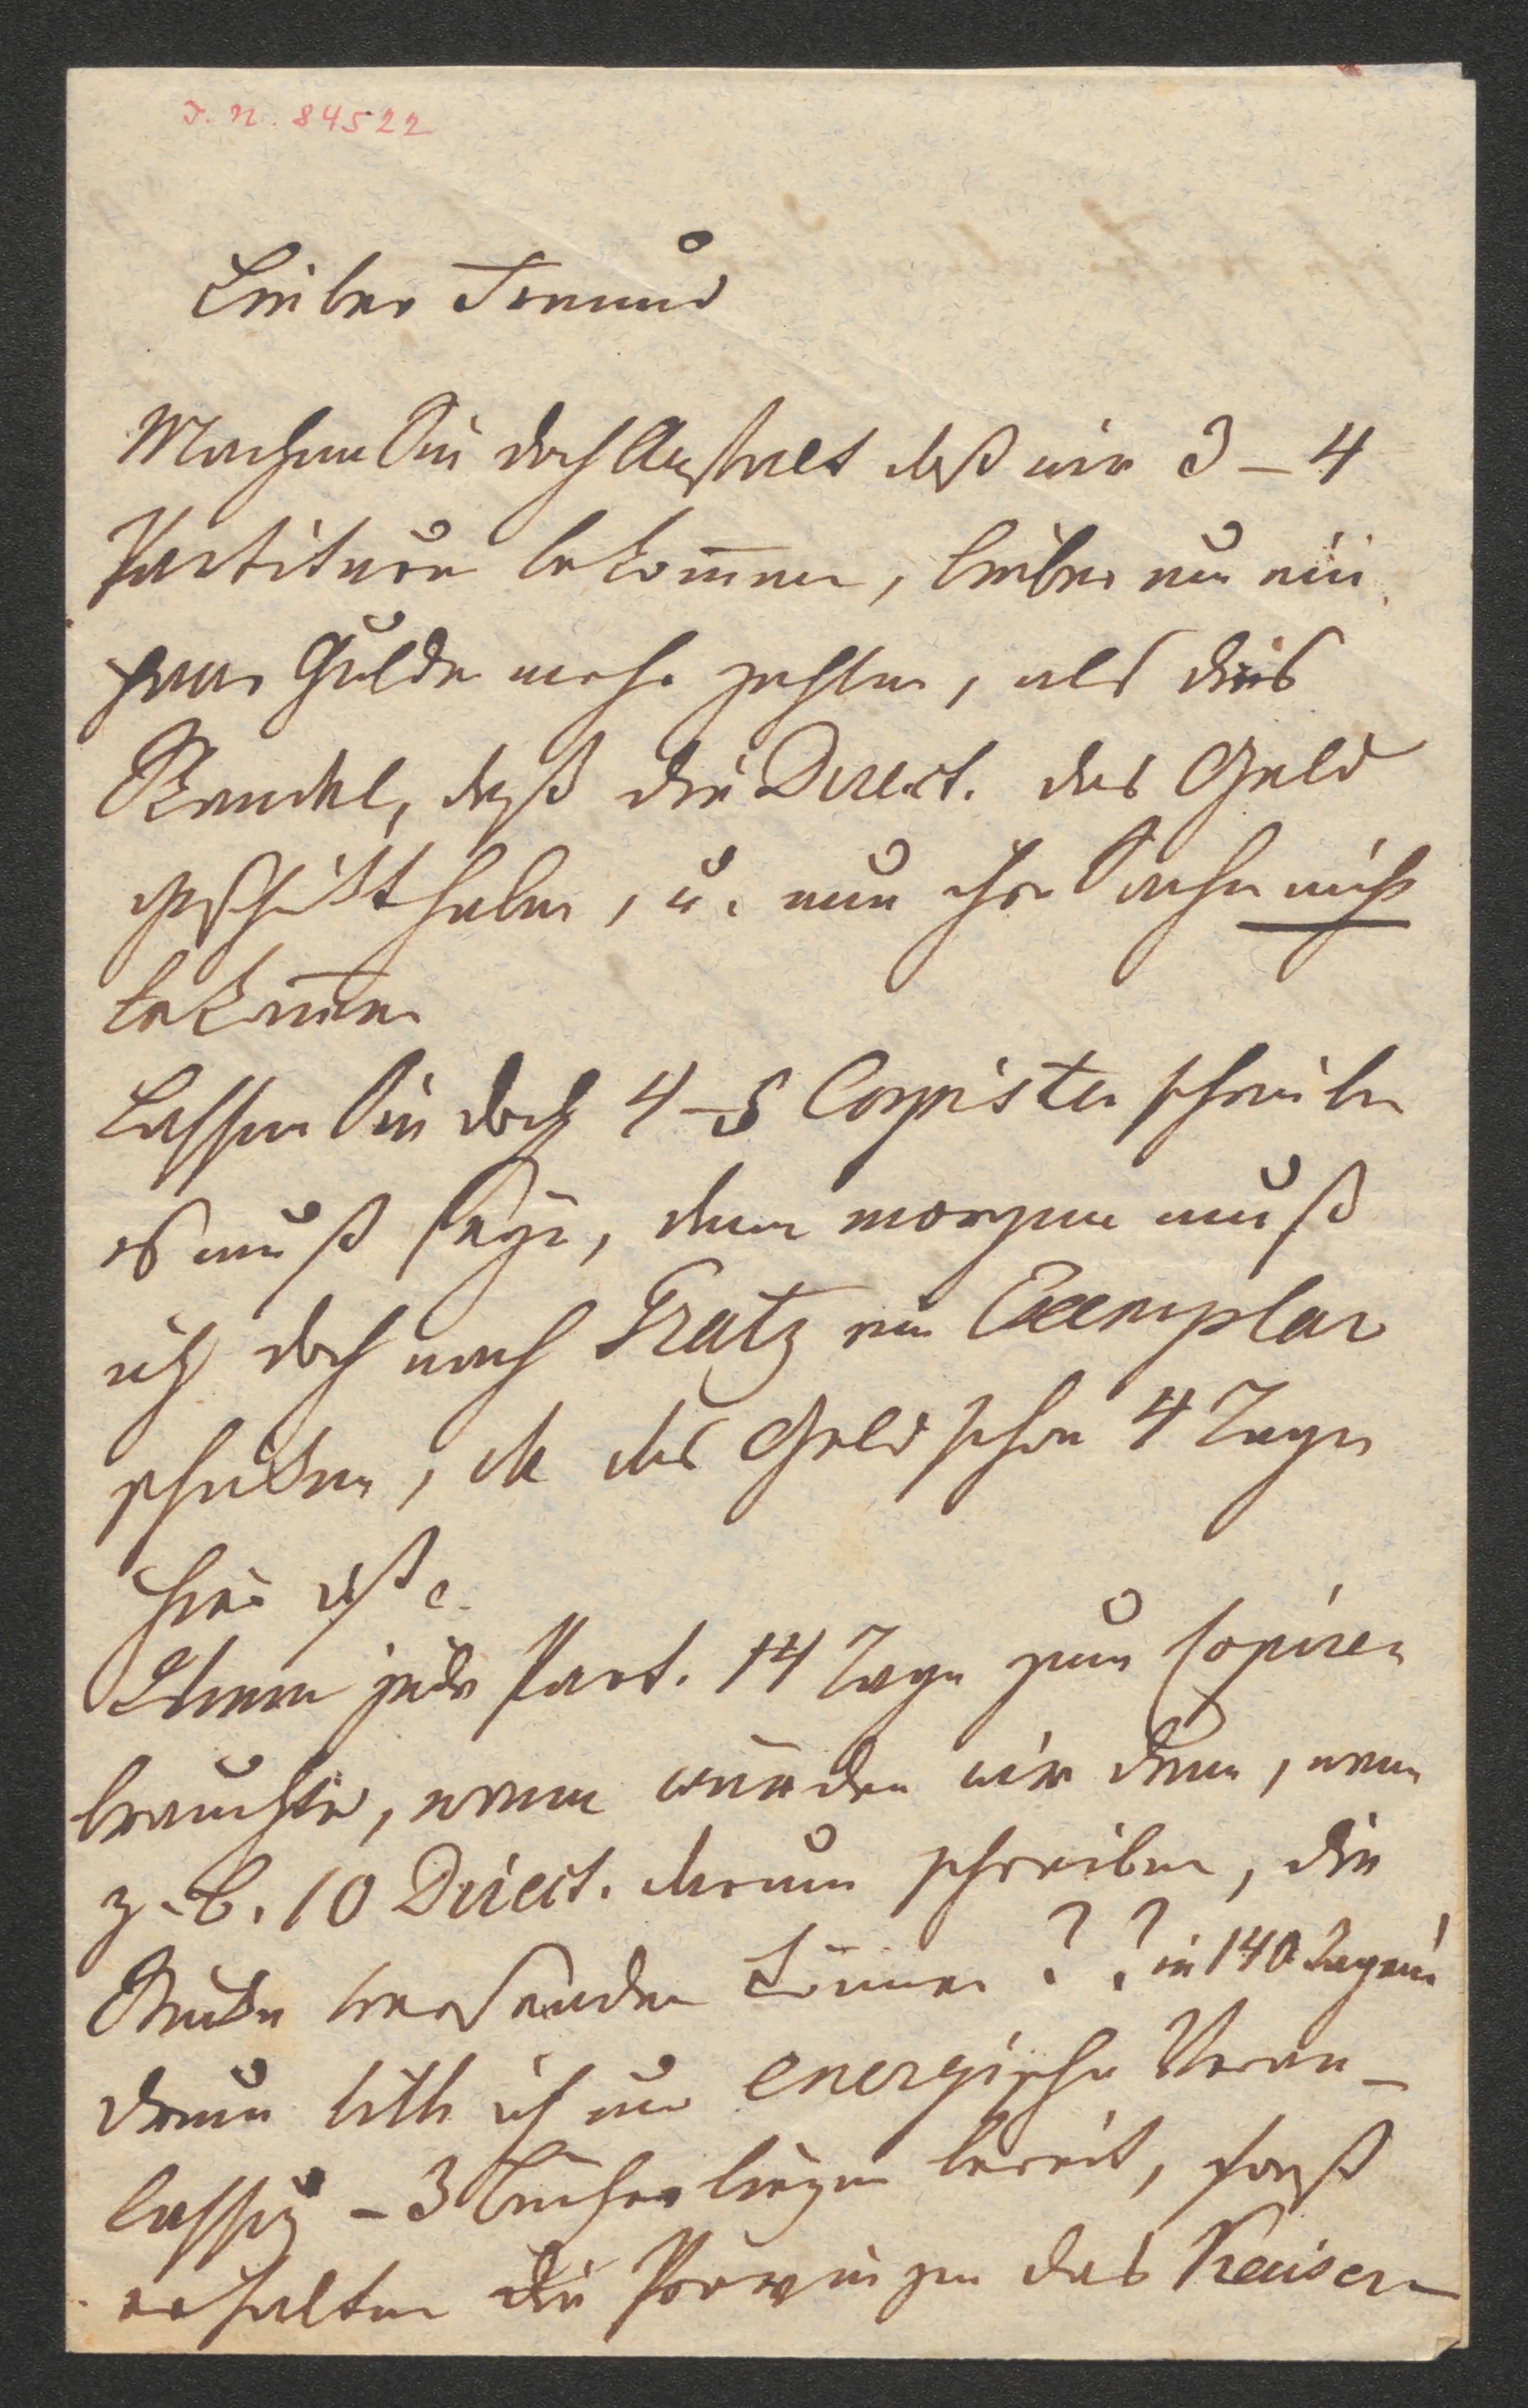 I. N. 84522
Lieber Freund
Machen Sie doch Anstalt daß wir 3 – 4
Partituren bekom̅en, lieber um ein
paar Gulden mehr zahlen, als dieß
Skandal, daß die Direct. das Geld
geschikt haben, u. nun ihre Sache nicht
bekom̅en
Lassen Sie doch 4–5 Copisten schreiben
es muß seyn, denn morgen muß
ich doch nach Gratz ein Exemplar
schicken, da das Geld schon 4 Tage
hier ist.
Wenn jede Part. 14 Tage zum Copiren
brauchte, wann würden wir denn, wenn
z. B. 10 Direct. darum schreiben, die
Stücke versenden können ? ? in 140 Tagen!
Darum bitte ich um energische Veran-
lassung – 3 Bücher liegen bereit, sonst
erhalten die Provinzen das Kaiser-